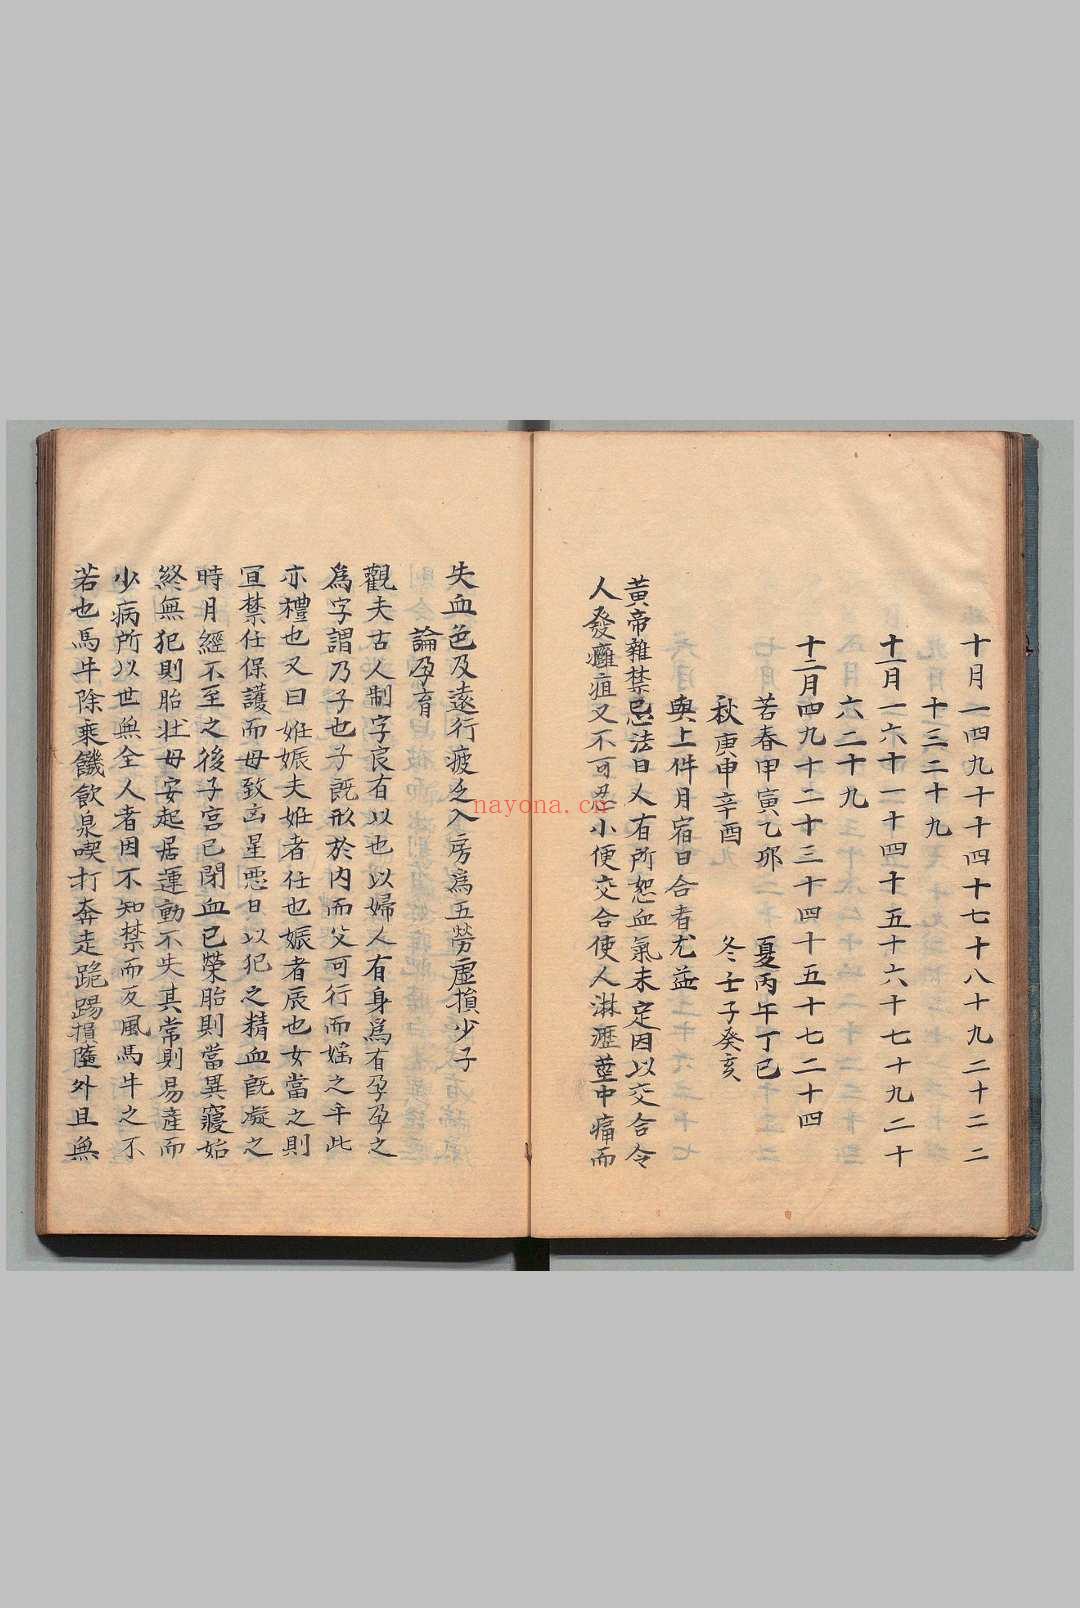 十月一四九十十四十七十八十九二十二二
十三二十九
十一月一六十一十四十五十六十七十九二十
六二十九
十二月四九十二十三十四十五十七二十四
若春甲寅乙邜 夏丙午丁巳
秋庚申辛酉 冬壬子癸亥
與上件月宿日合者尤益
黃帝雜禁忌法曰人有所怨血氣未定因以交合令
人發癰疽又不可忍小便交合使人淋瀝莖中痛而
失血色及遠行疲乏入房為五勞虛損少子
論孕育
觀夫古人制字良有以也以婦人有身為有孕孕之
為字謂乃子也子既形於內而父可行而婬之乎此
亦禮也又曰姙娠夫姙者任也娠者辰也女當之則
宜禁仕保護而毋致凶星惡日以犯之精血既凝之
時月經不至之後子宮已閉血已榮胎則當異寢始
終無犯則胎壯母安起居運動不失其常則易產而
少病所以世無全人者因不知禁而反風馬牛之不
若也馬牛除乘饑飲泉喫打奔走跪踢損墮外且無
nayona.cn